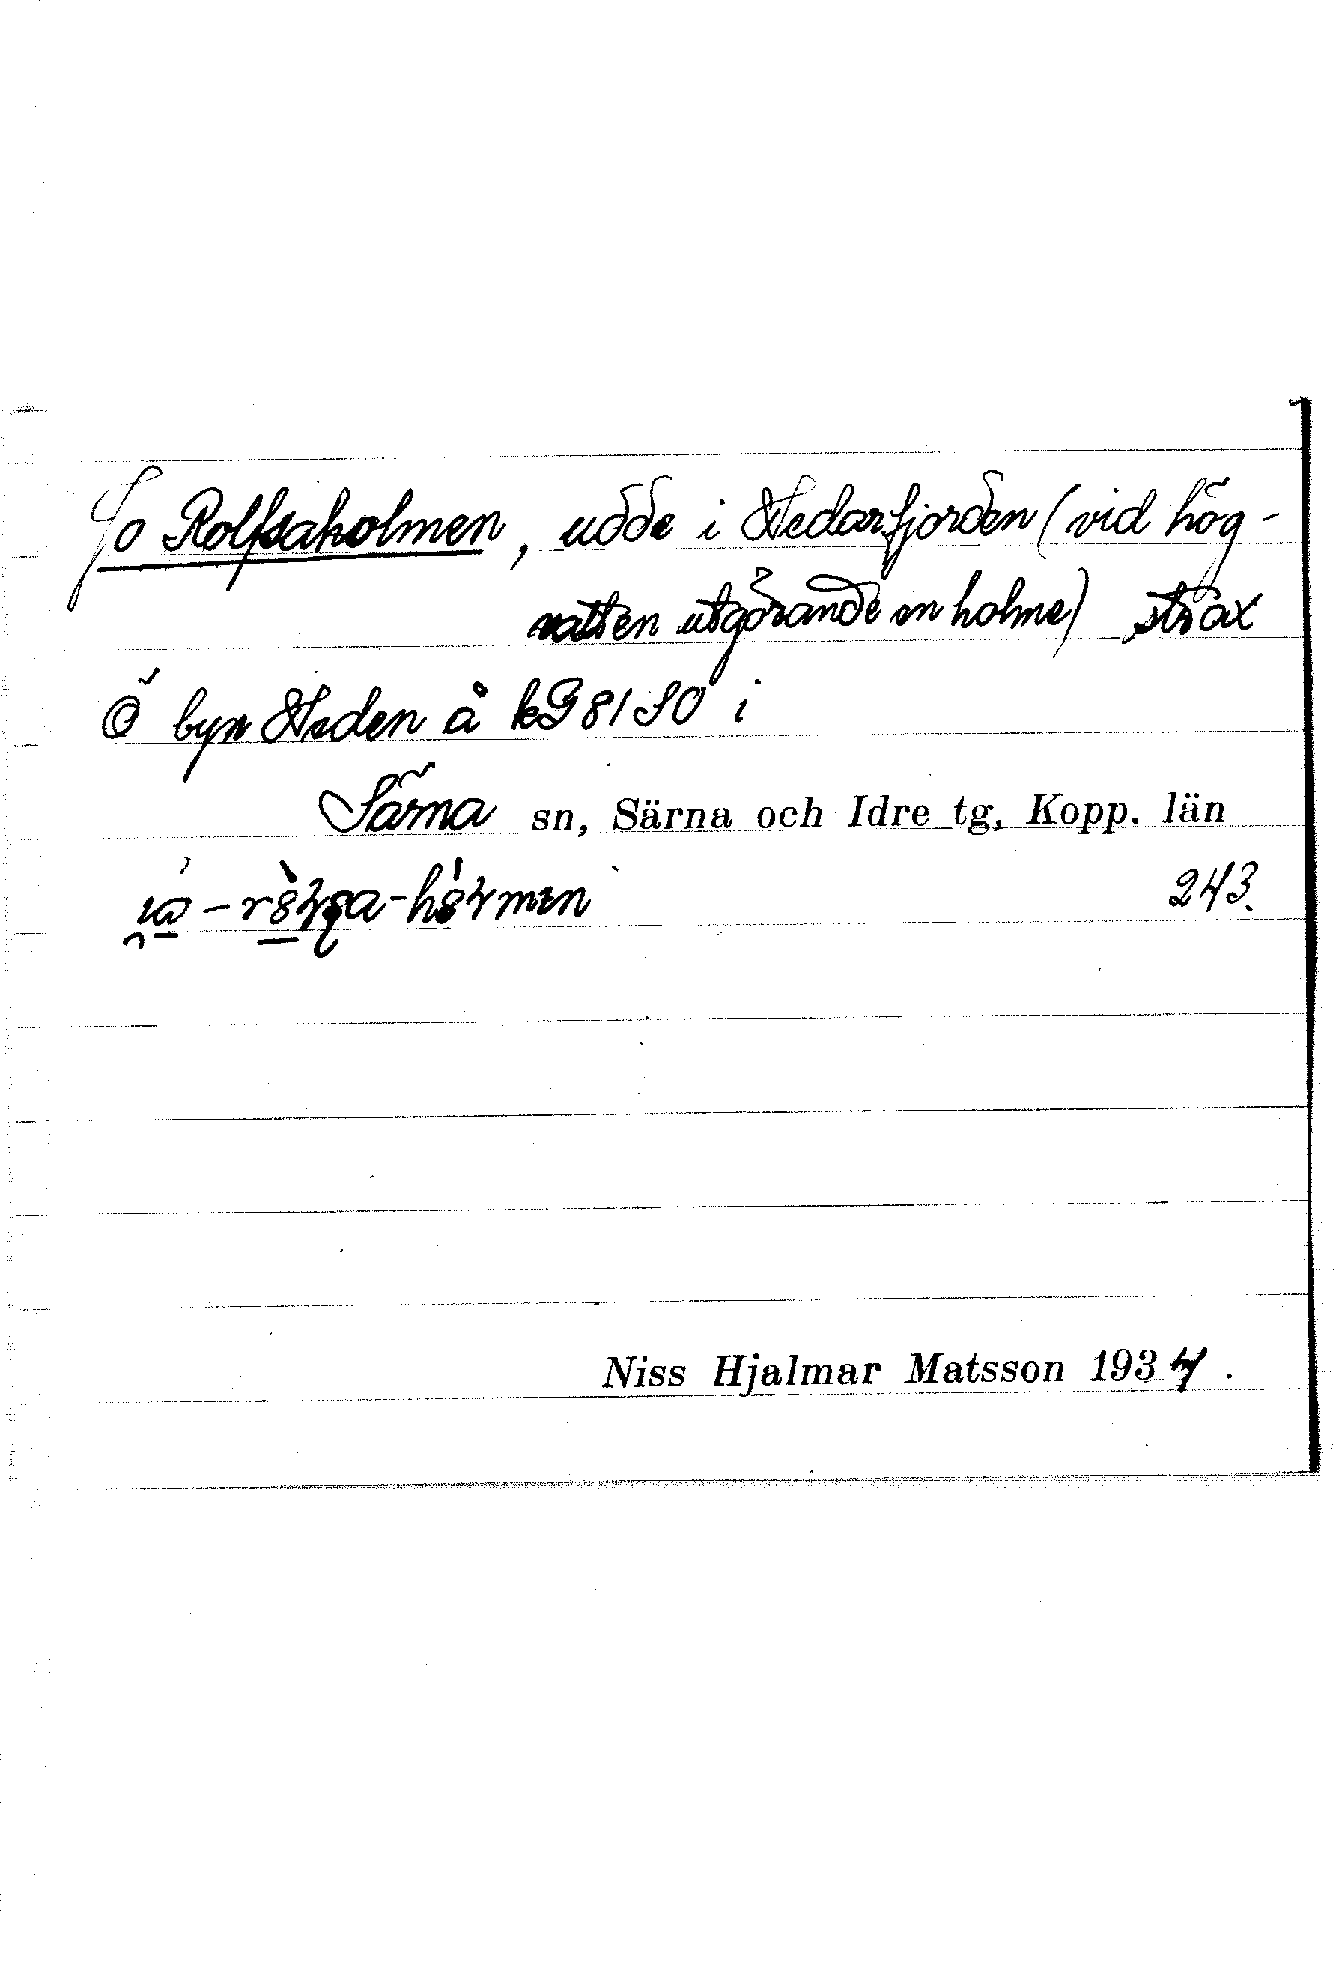 Jo Rolfsaholmen, udde i Hedarfjorden (vid hög-
vatten utgörande en holme) strax
Ö byn Heden å kG 81 SO i
Särna sn, Särna och Idre tg, Kopp. län
243.
Niss Hjalmar Matsson 1934.